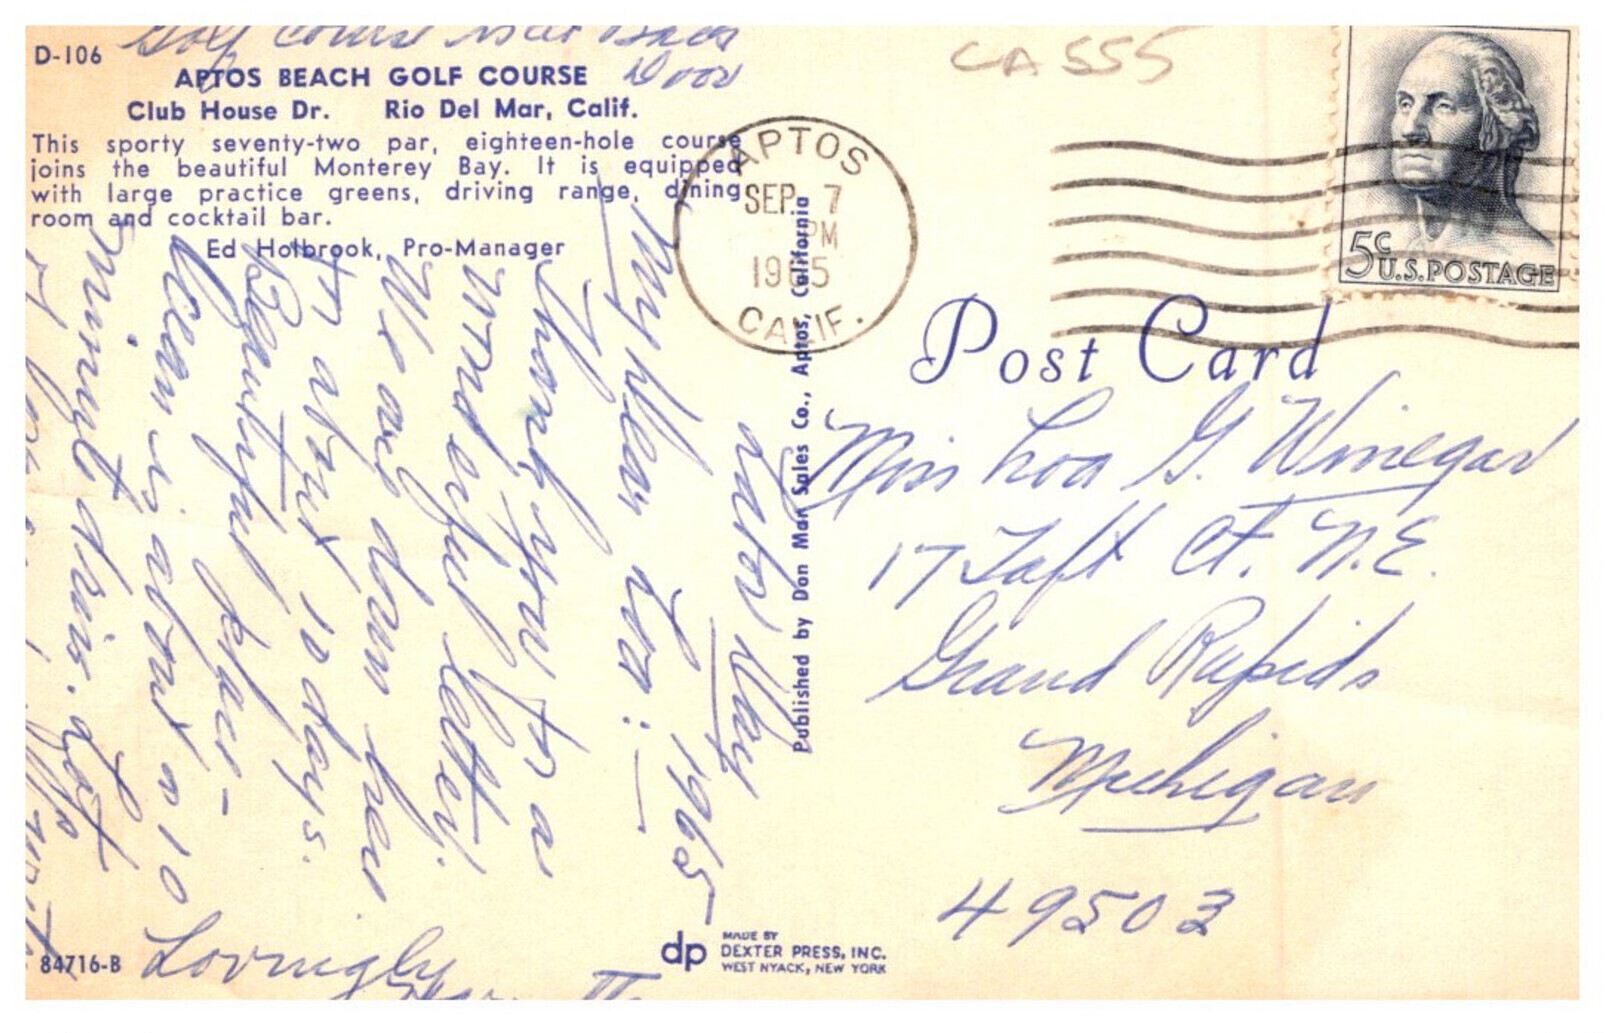 Golf course is at Back
Door
D-106
APTOS BEACH GOLF COURSE
Club House Dr. Rio Del Mar, Calif.
This sporty seventy-two par, eighteen-hole course
joins the beautiful Monterey Bay. It is equipped
with large practice greens, driving range, dining
room and cocktail bar.
Ed Holbrook, Pro-Manager
Labor Day
1965
My Dear Loa:—
Thank you for a
wonderful letter.
We are down here
for about 10 days.
Beautiful place-
Ocean is about a 10
minute drive. Lots
Lovingly
84716-B
Published by Don Mar Sales Co., Aptos, California
dp
MADE BY
DEXTER PRESS, INC.
WEST NYACK, NEW YORK
CA 555
APTOS
SEP 7
PM
1965
CALIF.
5c
U.S. POSTAGE
Post Card
Miss Loa G. Winegar
17 Taft Ct. N.E.
Grand Rapids
Michigan
49503